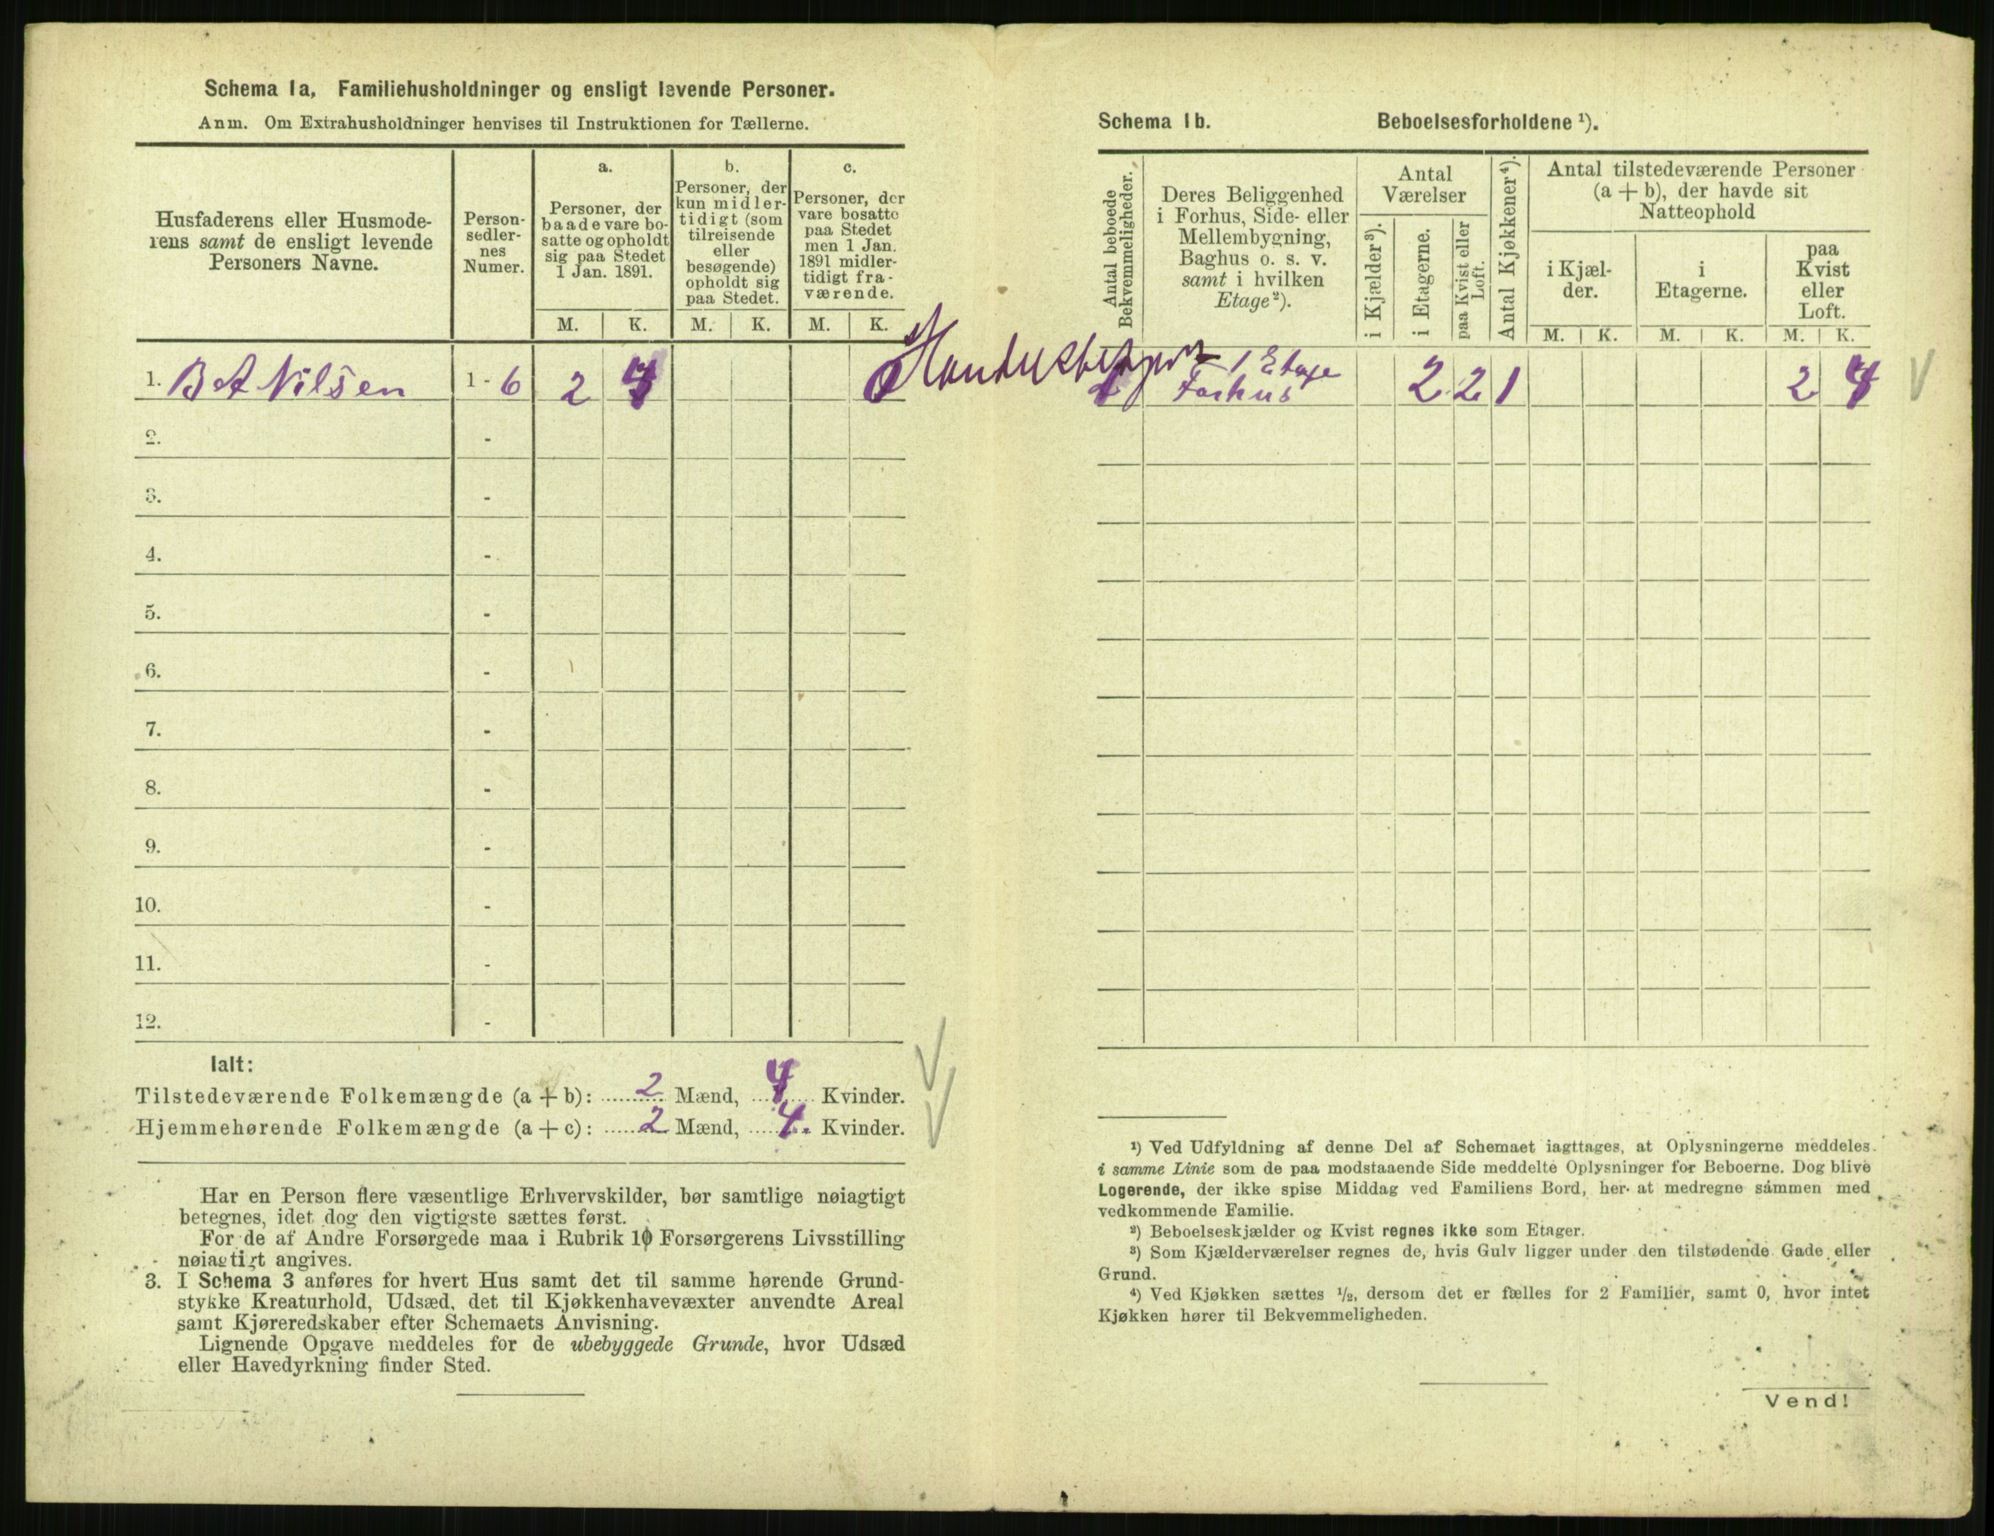 Schema 1a, Familiehusholdninger og ensligt levende Personer.
Anm. Om Extrahusholdninger henvises til Instruktionen for Tællerne.
Husfaderens eller Husmode-
rens samt de ensligt levende
Personers Navne.
Person-
sedler-
nes
Numer.
a.
Personer, der
baade vare bo-
satte og opholdt
sig paa Stedet
1 Jan. 1891.
b.
Personer, der
kun midler-
tidigt (som
tilreisende
eller
besøgende)
opholdt sig
paa Stedet.
c.
Personer, der
vare bosatte
paa Stedet
men 1 Jan.
1891 midler-
tidigt fra-
værende.
M. K. M. K. M. K.
1. B A Nilsen 1 - 6 2 4
2. -
3. -
4. -
5. -
6. -
7. -
8. -
9. -
10. -
11. -
12. -
Ialt:
Tilstedeværende Folkemængde (a + b): 2 Mænd, 4 Kvinder.
Hjemmehørende Folkemængde (a + c): 2 Mænd, 4 Kvinder.
Har en Person flere væsentlige Erhvervskilder, bør samtlige nøiagtigt
betegnes, idet dog den vigtigste sættes først.
For de af Andre Forsørgede maa i Rubrik 10 Forsørgerens Livsstilling
nøiagtigt angives.
3. I Schema 3 anføres for hvert Hus samt det til samme hørende Grund-
stykke Kreaturhold, Udsæd, det til Kjøkkenhavevæxter anvendte Areal
samt Kjøreredskaber efter Schemaets Anvisning.
Lignende Opgave meddeles for de ubebyggede Grunde, hvor Udsæd
eller Havedyrkning finder Sted.
Schema 1b. Beboelsesforholdene ¹).
Antal beboede
Bekvemmeligheder.
Deres Beliggenhed
i Forhus, Side- eller
Mellembygning,
Baghus o. s. v.
samt i hvilken
Etage²).
Antal
Værelser
i Kjælder³).
i Etagerne.
paa Kvist eller
Loft.
Antal Kjøkkener⁴).
Antal tilstedeværende Personer
(a + b), der havde sit
Natteophold
i Kjæl-
der.
i
Etagerne.
paa
Kvist
eller
Loft.
M. K. M. K. M. K.
1 Etage
Forhus 2 2 1 2 4
¹) Ved Udfyldning af denne Del af Schemaet iagttages, at Oplysningerne meddeles
i samme Linie som de paa modstaaende Side meddelte Oplysninger for Beboerne. Dog blive
Logerende, der ikke spise Middag ved Familiens Bord, her at medregne sammen med
vedkommende Familie.
²) Beboelseskjælder og Kvist regnes ikke som Etager.
³) Som Kjælderværelser regnes de, hvis Gulv ligger under den tilstødende Gade eller
Grund.
⁴) Ved Kjøkken sættes ½, dersom det er fælles for 2 Familier, samt 0, hvor intet
Kjøkken hører til Bekvemmeligheden.
Vend!